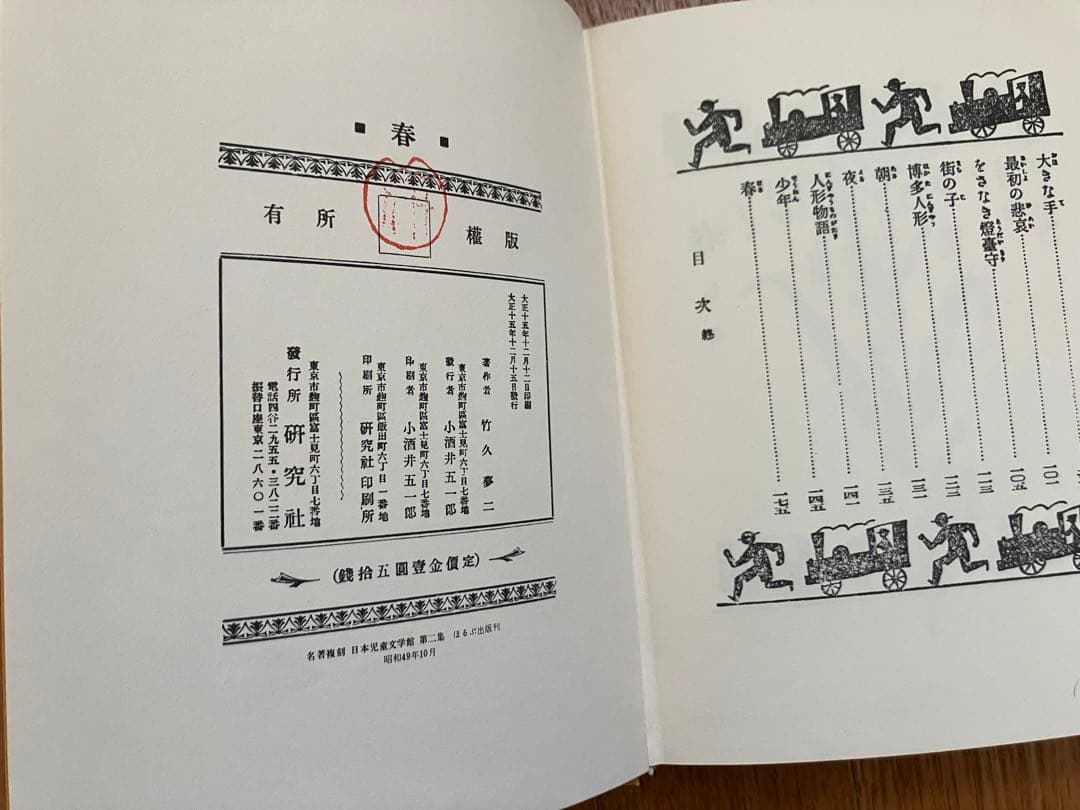 大きな手 一〇一
最初の悲哀 一〇五
をさなき燈臺守 一一三
街の子 一二三
博多人形 一三一
朝 一三五
夜 一四一
人形物語 一四五
少年
春 一七五
目次 終
■春■
版權所有
大正十五年十二月十二日印刷
大正十五年十二月十五日發行
著作者 竹久夢二
東京市麹町區富士見町六丁目七番地
發行者 小酒井五一郎
東京市麹町區富士見町六丁目七番地
印刷者 小酒井五一郎
東京市麹町區飯田町六丁目一番地
印刷所 研究社印刷所
東京市麹町區富士見町六丁目七番地
發行所 研究社
電話四谷二九五五・三八二二番
振替口座東京二八六〇一番
(定價金壹圓五拾錢)
名著複刻 日本児童文学館 第二集 ほるぷ出版刊
昭和49年10月